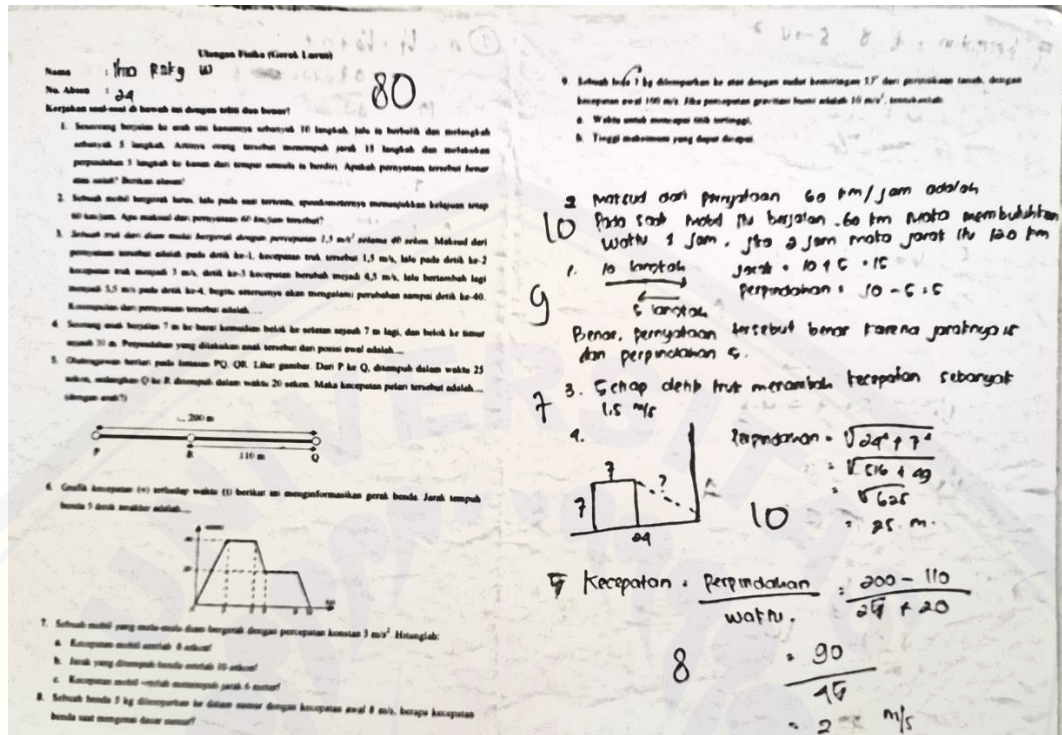 Ulangan Fisika (Gerak Lurus)
Nama :
No. Absen : 24
80
Kerjakan soal-soal di bawah ini dengan teliti dan benar!
1. Seseorang berjalan ke arah sisi kanannya sebanyak 10 langkah, lalu ia berbalik dan melangkah
sebanyak 5 langkah. Artinya orang tersebut menempuh jarak 15 langkah dan melakukan
perpindahan 5 langkah ke kanan dari tempat semula ia berdiri. Apakah pernyataan tersebut benar
atau salah? Berikan alasan!
2. Sebuah mobil bergerak lurus, lalu pada saat tertentu, speedometernya menunjukkan kelajuan tetap
60 km/jam. Apa maksud dari pernyataan 60 km/jam tersebut?
3. Sebuah truk dari diam mulai bergerak dengan percepatan 1,5 m/s² selama 40 sekon. Maksud dari
pernyataan tersebut adalah pada detik ke-1, kecepatan truk tersebut 1,5 m/s, lalu pada detik ke-2
kecepatan truk menjadi 3 m/s, detik ke-3 kecepatan berubah mejadi 4,5 m/s, lalu bertambah lagi
menjadi 5,5 m/s pada detik ke-4, begitu seterusnya akan mengalami perubahan sampai detik ke-40.
Kesimpulan dari pernyataan tersebut adalah....
4. Seorang anak berjalan 7 m ke barat kemudian belok ke selatan sejauh 7 m lagi, dan belok ke timur
sejauh 31 m. Perpindahan yang dilakukan anak tersebut dari posisi awal adalah....
5. Olahragawan berlari pada lintasan PQ, QR. Lihat gambar. Dari P ke Q, ditempuh dalam waktu 25
sekon, sedangkan Q ke R ditempuh dalam waktu 20 sekon. Maka kecepatan pelari tersebut adalah....
(dengan arah?)
200 m
P R 110 m Q
6. Grafik kecepatan (v) terhadap waktu (t) berikut ini menginformasikan gerak benda. Jarak tempuh
benda 5 detik terakhir adalah....
7. Sebuah mobil yang mula-mula diam bergerak dengan percepatan konstan 3 m/s². Hitunglah:
a. Kecepatan mobil setelah 8 sekon!
b. Jarak yang ditempuh benda setelah 10 sekon!
c. Kecepatan mobil setelah menempuh jarak 6 meter!
8. Sebuah benda 5 kg dilemparkan ke dalam sumur dengan kecepatan awal 8 m/s, berapa kecepatan
benda saat mengenai dasar sumur?
9. Sebuah bola 3 kg dilemparkan ke atas dengan sudut kemiringan 37° dari permukaan tanah, dengan
kecepatan awal 100 m/s. Jika percepatan gravitasi bumi adalah 10 m/s², tentukanlah:
a. Waktu untuk mencapai titik tertinggi,
b. Tinggi maksimum yang dapat dicapai.
2 maksud dari pernyataan 60 km/jam adalah
10 Pada saat mobil itu berjalan 60 km maka membutuhkan
waktu 1 jam, jika 2 jam maka jarak itu 120 km
1. 10 langkah jarak = 10 + 5 = 15
9 5 langkah Perpindahan = 10 - 5 = 5
Benar, pernyataan tersebut benar karena jaraknya 15
dan perpindahan 5.
7 3. Setiap detik truk menambah kecepatan sebanyak
1,5 m/s
4. Perpindahan = √24² + 7²
7 ? = √576 + 49
7 = √625
24 10 = 25 m.
5 Kecepatan = Perpindahan / waktu = 200 - 110 / 25 + 20
8 = 90 / 45
= 2 m/s